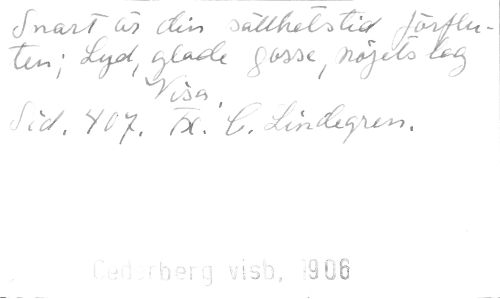 Snart är din sällhetstid förflu-
ten; Lyd, glade gosse, nöjets lag
Visa.
Sid. 407. Tx. C. Lindegren.
Cederberg visb, 1906